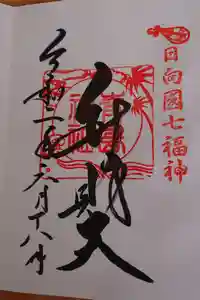 日向國七福神
財天
令和二年六月十八日